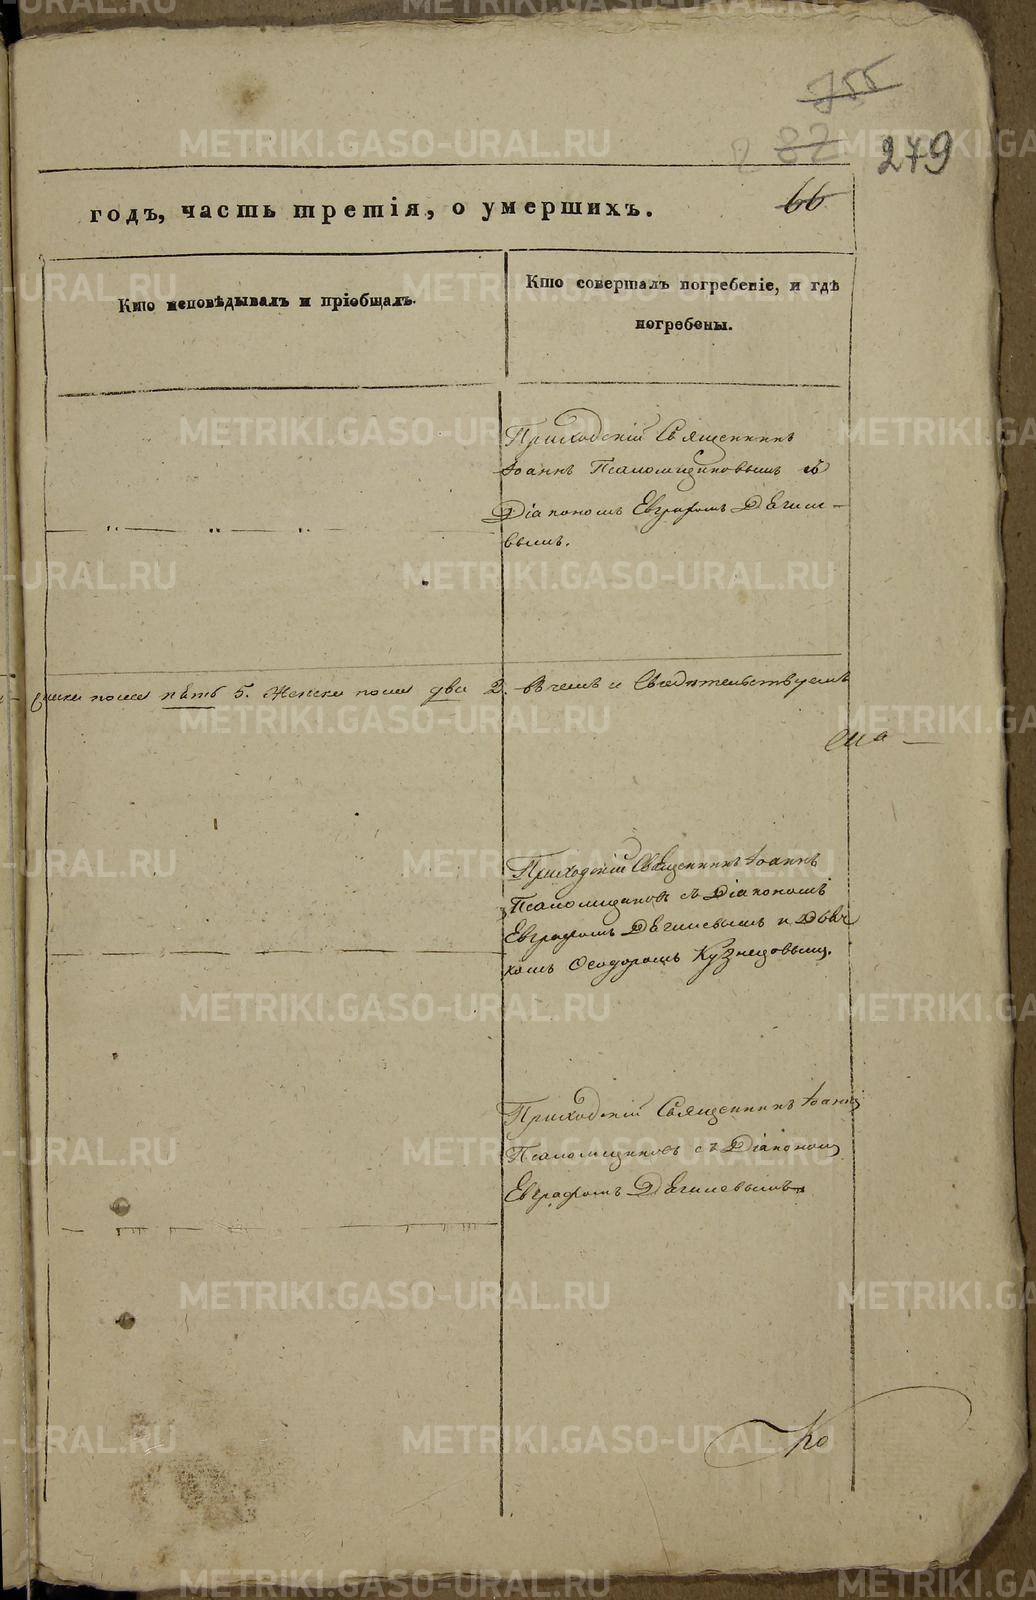 755
2 82
279
годъ, часть третія, о умершихъ.
66
Кто исповѣдывалъ и пріобщалъ.
Кто совершалъ погребеніе, и гдѣ
погребены.
Приходскій Священникъ
Іоаннъ Псаломщиковымъ съ
Діакономъ Евграфомъ Дягиле-
вымъ.
пола пять 5. Женска пола два 2. въ чемъ и Свидѣтельствуемъ
Приходскій Священникъ Іоаннъ
Псаломщиковъ съ Діакономъ
Евграфомъ Дягилевымъ и Дьяч
комъ Ѳеодоромъ Кузнецовымъ.
Приходскій Священникъ Іоаннъ
Псаломщиковъ съ Діакономъ
Евграфомъ Дягилевымъ
Ко
METRIKI.GASO-URAL.RU